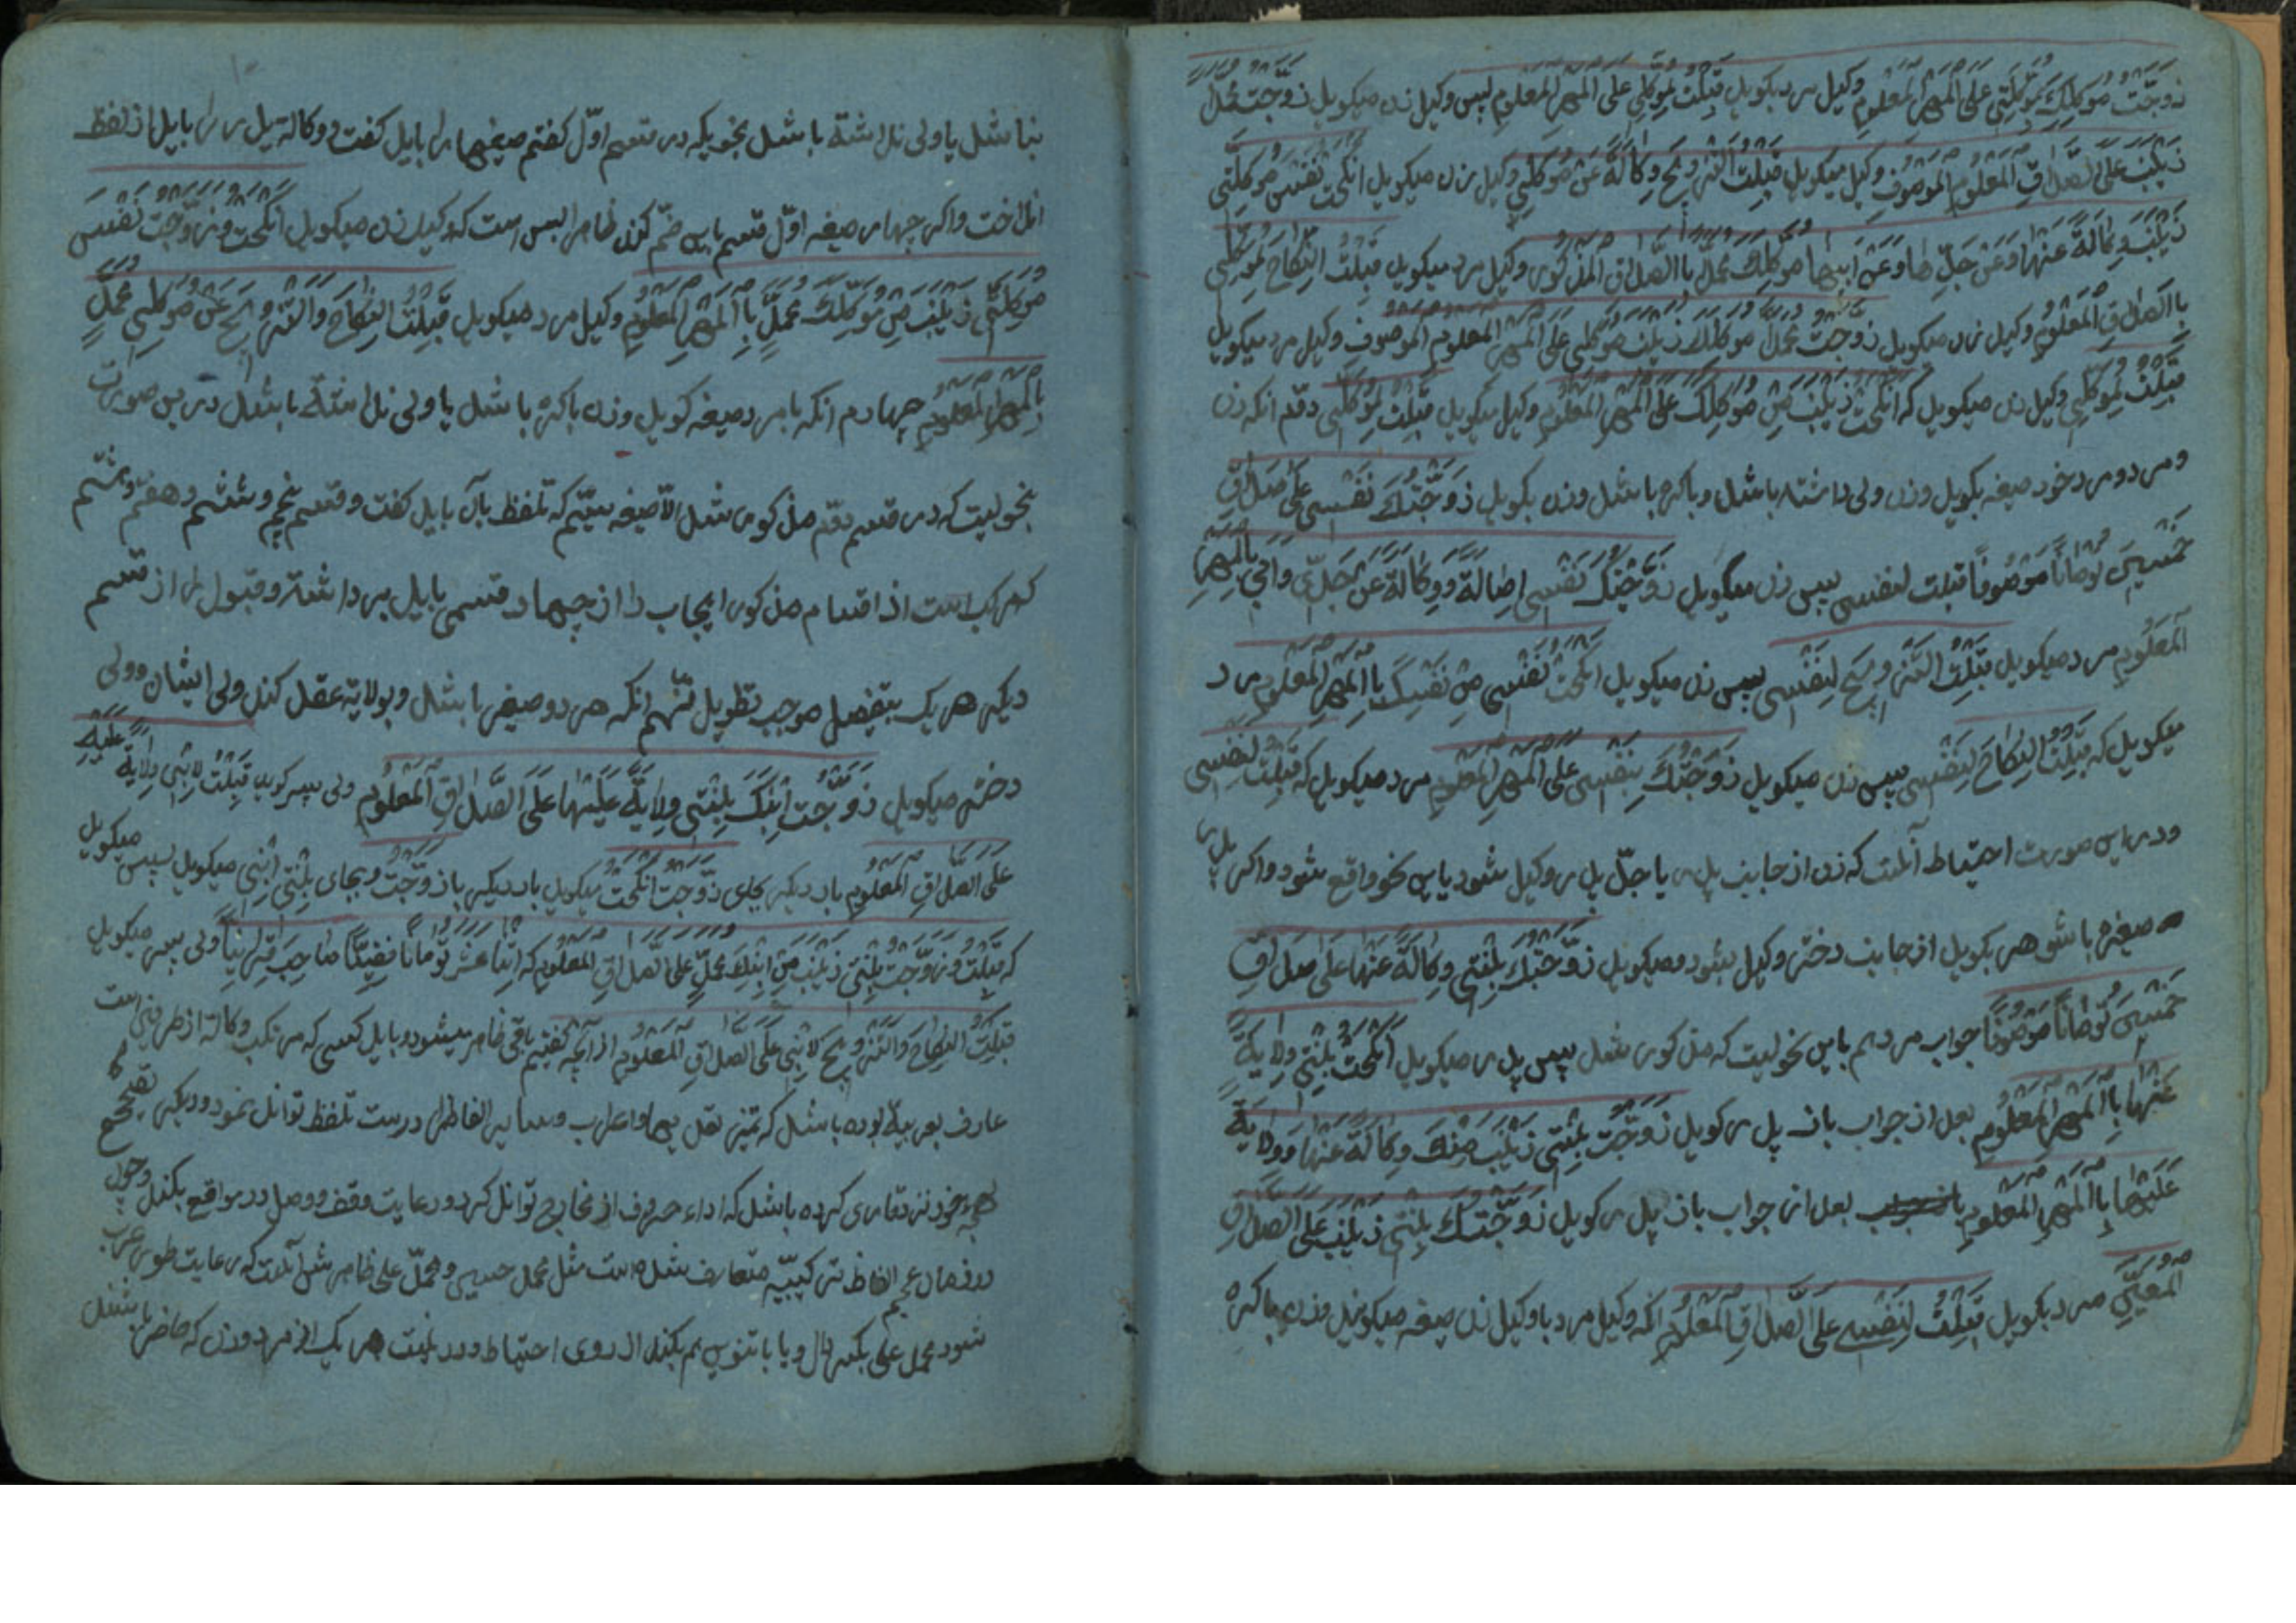 زوجت موکلک موکلتی علی المهر المعلوم وکیل مرد بکوید قبلت لموکلی علی المهر المعلوم پس وکیل زن میکوید زوجت محمدا
زینب علی الصداق المعلوم الموصوف وکیل میکوید قبلت التزویج وکالة عن موکلی وکیل زن میکوید انکحت نفس موکلتی
زینب وکالة عنها وعن جدها وعن ابیها موکلک محمد باالصداق المذکور وکیل مرد میکوید قبلت النکاح لموکلی
باالصداق المعلوم وکیل زن میکوید زوجت محمدا موکلک زینب موکلتی علی المهر المعلوم الموصوف وکیل مرد میکوید
قبلت لموکلی وکیل زن میکوید که انکحت زینب من موکلک علی المهر المعلوم وکیل میکوید قبلت لموکلی دوم انکه زن
ومرد ومرد خود صیغه بکوید وزن ولی داشته باشد وباکره باشد وزن بکوید زوجتک نفسی علی صداق
خمسین تومانا موصوفا قبلت لنفسی پس زن میکوید زوجتک نفسی اصالة ووکالة عن جدی وابی باالمهر
المعلوم مرد میکوید قبلت التزویج لنفسی پس زن میکوید انکحت نفسی من نفسک باالمهر المعلوم مرد
میکوید که قبلت النکاح لنفسی پس زن میکوید زوجتک بنفسی علی المهر المعلوم مرد میکوید که قبلت لنفسی
ودر این صورت احتیاط آنست که زن از جانب پدر یا جد پدر وکیل شود باین نحو واقع شود واکر پدر
صغیره باشوهر بکوید از جانب دختر وکیل بشود ومیکوید زوجتک بنتی وکالة عنها علی صداق
خمسین تومانا موصوفا جواب مرد هم باین نحویست که مذکور شد پس پدر میکوید انکحت بنتی ولایة
عنها باالمهر المعلوم بعد از جواب باز پدر کوید زوجت بنتی زینب منک وکالة عنها وولایة
علیها باالمهر المعلوم بعد از جواب باز پدر کوید زوجتک بنتی زینب علی الصداق
المعین مرد بکوید قبلت لنفسی علی الصداق المعلوم انکه وکیل مرد باوکیل زن صیغه میکویند وزن باکره
نباشد یا ولی نداشته باشد بنحویکه در قسم اول کفتم صیغها را باید کفت ووکالة پدر را باید از لفظ
انداخت واکر چهار صیغه اول قسم باین ضم کند ظاهرا بس است که وکیل زن میکوید انکحت وزوجت نفس
موکلتی زینب من موکلک محمد باالمهر المعلوم وکیل مرد میکوید قبلت النکاح والتزویج عن موکلی محمد
باالمهر المعلوم چهارم انکه بامرد صیغه کوید وزن باکره باشد یا ولی نداشته باشد درین صورت
بنحویست که در قسم دوم مذکور شد الا صیغه سیم که تلفظ بآن باید کفت وقسم پنجم وششم وهفتم وهشتم
که مرکب است از اقسام مذکور ایجاب را از چهار قسمی باید برداشته وقبول را از قسم
دیکر هر یک بتفصیل موجب تطویل نهم انکه هر دو صغیر باشد وبولایة عقد کند ولی ایشان وولی
دختر میکوید زوجت ابنک بنتی ولایة علیها علی الصداق المعلوم ولی پسر کوید قبلت لابنی ولایة علیه
علی الصداق المعلوم بار دیکر بجای زوجت انکحت میکوید بار دیکر باز زوجت وبجای بنتی ابنتی میکوید پس میکوید
که قبلت وزوجت بنتی زینب من ابنک محمد علی الصداق المعلوم که اثنا عشر تومانا ولی پسر میکوید
قبلت النکاح والتزویج لابنی علی الصداق المعلوم از آنچه کفتیم باقی ظاهر میشود وباید کسی که مرتکب وکالة از طرفین است
عارف بعربیة بوده باشد که تمیز واعراب وسایر الفاظ را درست تلفظ تواند نمود ودیکر تصحیح
لهجه خود نزد قاری کرده باشد که اداء حروف از مخارج تواند کرد ورعایت وقف ووصل در مواقع بکند وچون
در زمان عجم الفاظ ترکیبیه متعارف شده است مثل محمد حسین ومحمد علی ظاهر شد آنست که رعایت طور عرب
شود محمد علی بکسر دال ویا باتنوین هم بکند از روی احتیاط هر یک از مرد وزن که حاضر باشند